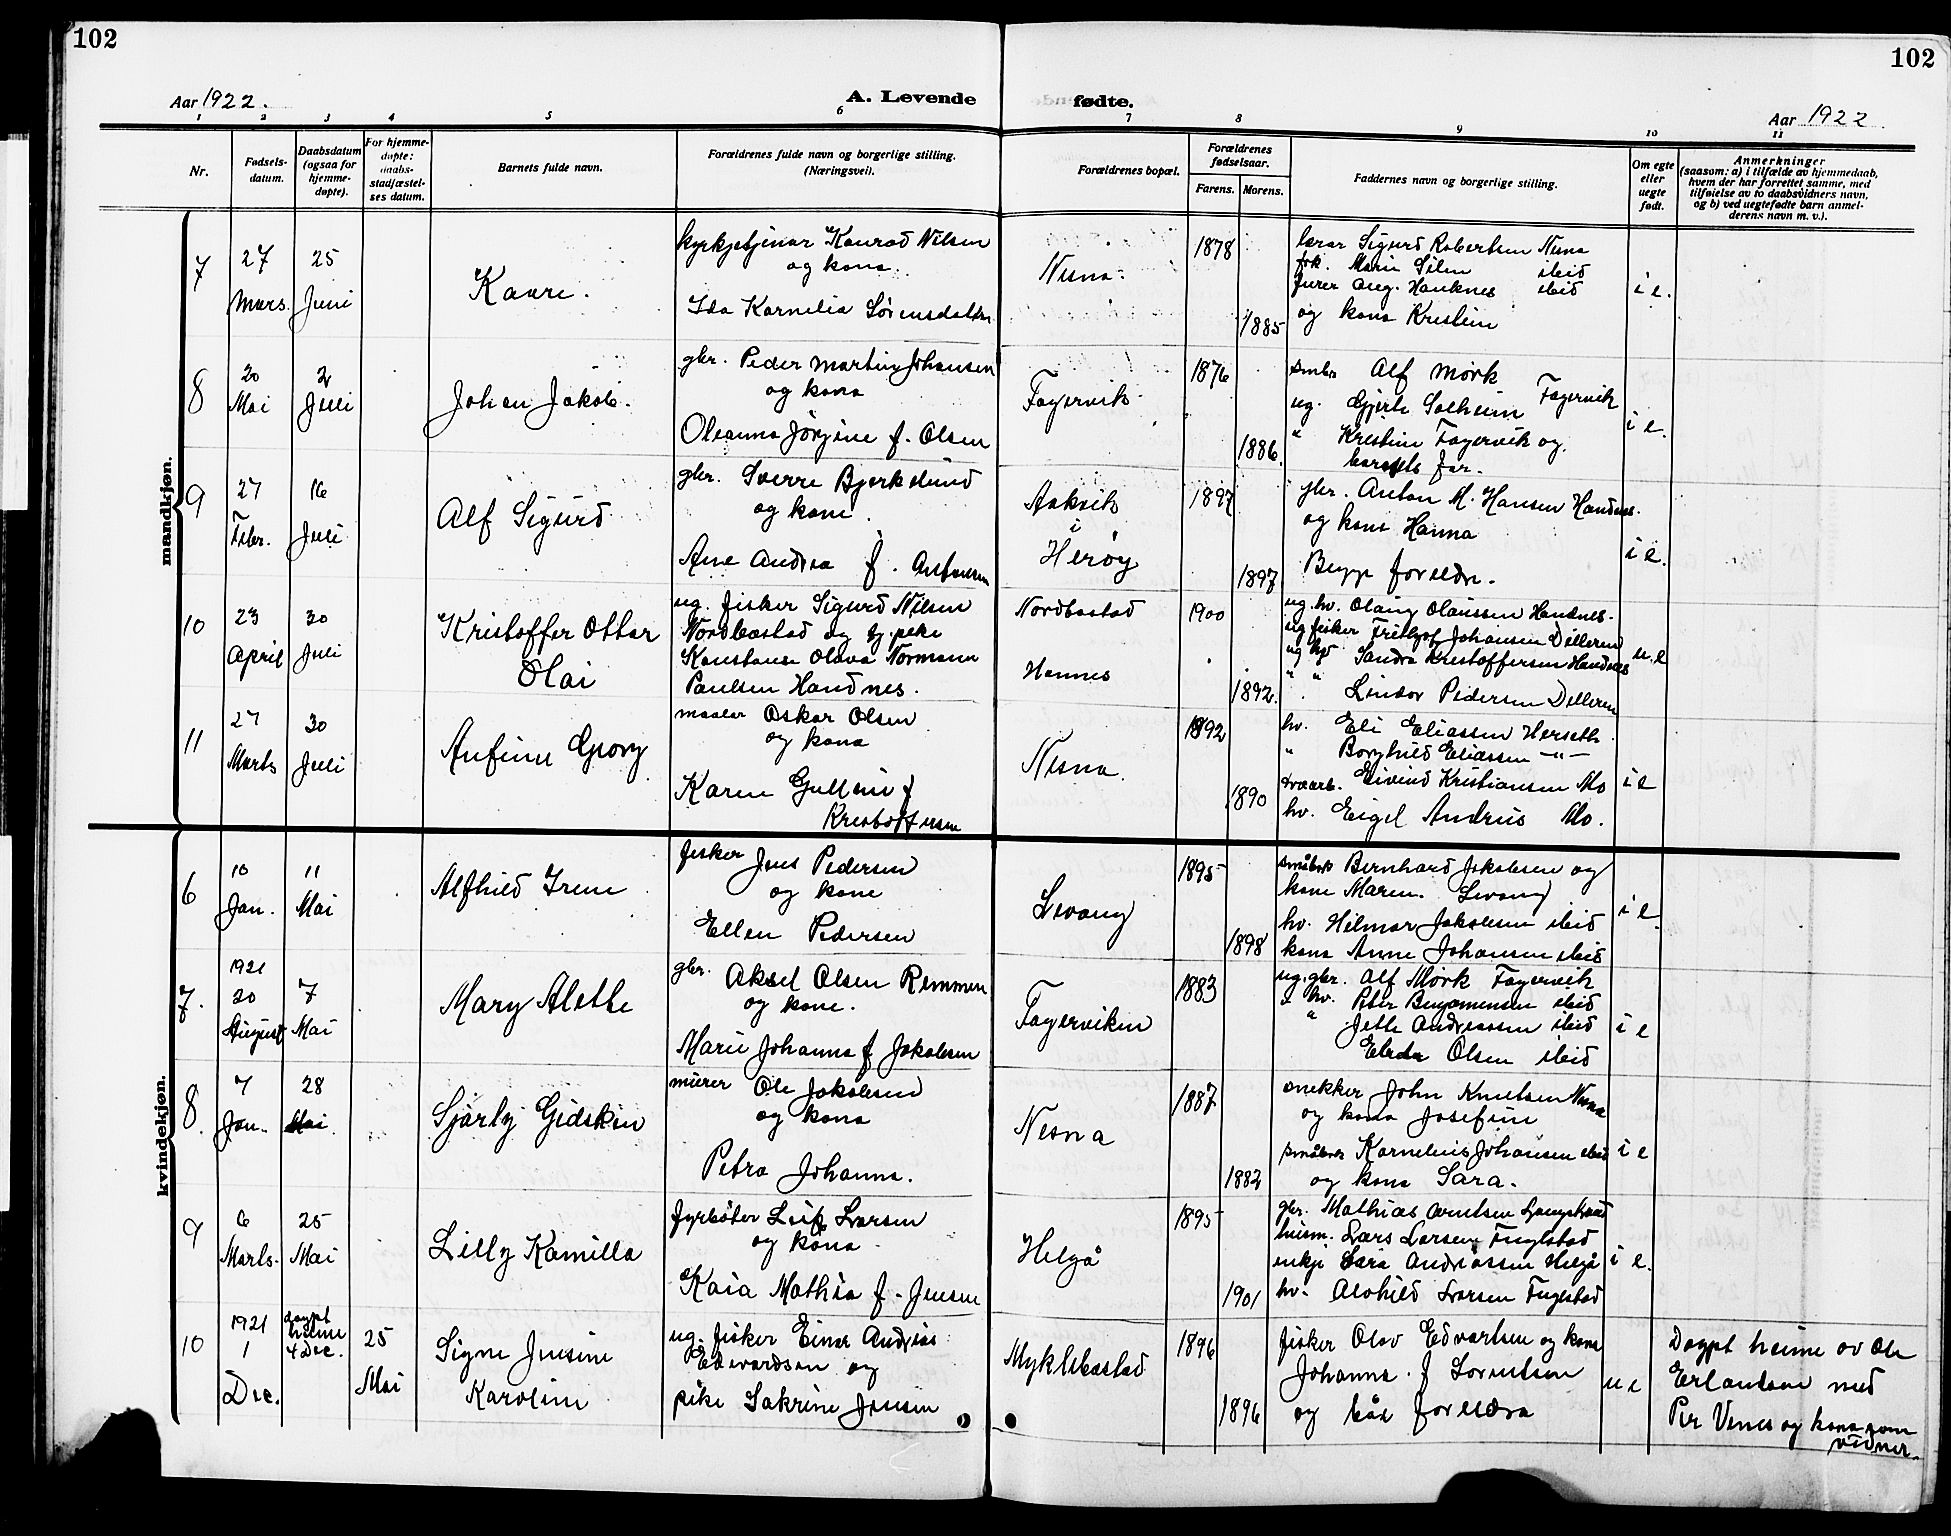 102
102
Aar 1922.
A. Levende fødte.
Aar 1922
1 2 3 4 5 6 7 8 9 10 11
Nr.
Fødsels-
datum.
Daabsdatum
(ogsaa for
hjemme-
døpte).
For hjemme-
døpte:
daabs-
stadfæstel-
ses datum.
Barnets fulde navn.
Forældrenes fulde navn og borgerlige stilling.
(Næringsvei).
Forældrenes bopæl.
Forældrenes
fødselsaar.
Farens. Morens.
Faddernes navn og borgerlige stilling.
Om egte
eller
uegte
født.
Anmerkninger
(saasom: a) i tilfælde av hjemmedaab,
hvem der har forrettet samme, med
tilføielse av to daabsvidners navn,
og b) ved uegtefødte barn anmel-
derens navn m. v.).
mandkjøn.
7
27
Mars.
25
Juni
Kaare.
kyrkjetjenar Konrad Nilsen
og kona
Ida Kornelia Sørensdatter
Nesna
1878
1885
lærar Sigurd Robertsen Nesna
frk. Marie Silen ibid
furer Aug. Hauknes ibid
og kona Kristine
i e.
8
20
Mai
2
Juli
Johan Jakob.
gbr. Peder Martin Johansen
og kona
Oleanna Jørgine f. Olsen
Fagervik
1876
1886.
småbr Alf Mørk
ug. Gjerte Solheim Fagervik
" Kristine Fagervik og
barnets far.
i e.
9
27
Febr.
16
Juli
Alf Sigurd
gbr. Sverre Bjerkelund
og kone
Ane Andrea f. Antonsen
Aakvik
i
Herøy
1897
1897
gbr. Anton M. Hansen Handnes.
og kona Hanna
Begge foreldre.
i e.
10
23
April
30
Juli
Kristoffer Ottar
Olai
ug. fisker Sigurd Nilsen
Nordbostad og tj. pike
Konstanse Olava Normann
Paulsen Handnes.
Nordbostad
Hannes
1900
1892.
ug. hv. Olaug Olaussen Handnes.
ug fisker Fritjof Johansen Dilleren
ug hv Sandra Kristoffersen Handnes
" " Lindor Pedersen Dilleren
u. e
11
27
Marts
30
Juli
Anfinn Georg
maalar Oskar Olsen
og kona
Karen Gulline f
Kristoffersen
Nesna.
1892
1890
hv. Eli Eliassen Herseth
" Borghild Eliassen —"—
Eivind Kristiansen Mo
hv. Eigel Andrius Mo.
i e
kvindekjøn.
6
10
Jan.
11
Mai
Alfhild Irene
fisker Jens Pedersen
og kone
Ellen Pedersen
Levang
1895
1898
småbrk Bernhard Jakobsen og
kone Maren. Levang
hv. Hilmar Jakobsen ibid
kona Anne Johansen ibid
i e.
7.
1921
20
August
7
Mai
Mary Alethe
gbr. Aksel Olsen Remmen
og kone.
Marie Johanna f Jakobsen
Fagerviken
1883
ug. gbr. Alf Mørk Fagervik
" hv. Peter Benjamensen ibid
" Jette Andreassen ibid
Olsen ibid
i e
8.
7
Jan.
28
Mai.
Sjørly Gidskin
murer Ole Jakobsen
og kona
Petra Johanna.
Nesna
1887
1882
snekker John Knutsen Nesna
og kona Josefine
småbrk Kornelius Johansen ibid
og kona Sara.
i e
9
6
Marts.
25
Mai
Lilly Kamilla
fyrbøter Leif Larsen
og kona
Kaia Mathea f. Jensen
Helgå
1895
1901
gbr. Mathias Arntsen Langstrand
husm. Lars Larsen Fuglstad
enkje Sara Andreassen Helgå
hv. Alvhild Larsen Fuglstad
i e.
10
1921
1
Dec.
døypt
heime
4 Dec.
25
Mai
Signe Jensine
Karoline
ug. fisker Einar Andreas
Edvardsen og
pike Sakrine Jensen
Myklebostad
1896
1896
fisker Olav Edvartsen og kona
Johanna f Sorentsen
og båe foreldra
u e
Døypt heime av Ole
Erlandsen med
Per Venes og kona som
vidner.